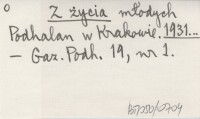 o
Z życia młodych
Podhalan w Krakowie. 1931...
— Gaz. Podh. 19, nr 1.